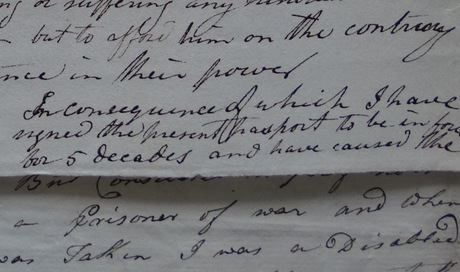 or suffering any
but to afford him on the contrary
in their power
In consequence of which I have
signed the present Passport to be in
for 5 decades and have caused the
a Prisoner of war and when
was Taken I was a Disabled